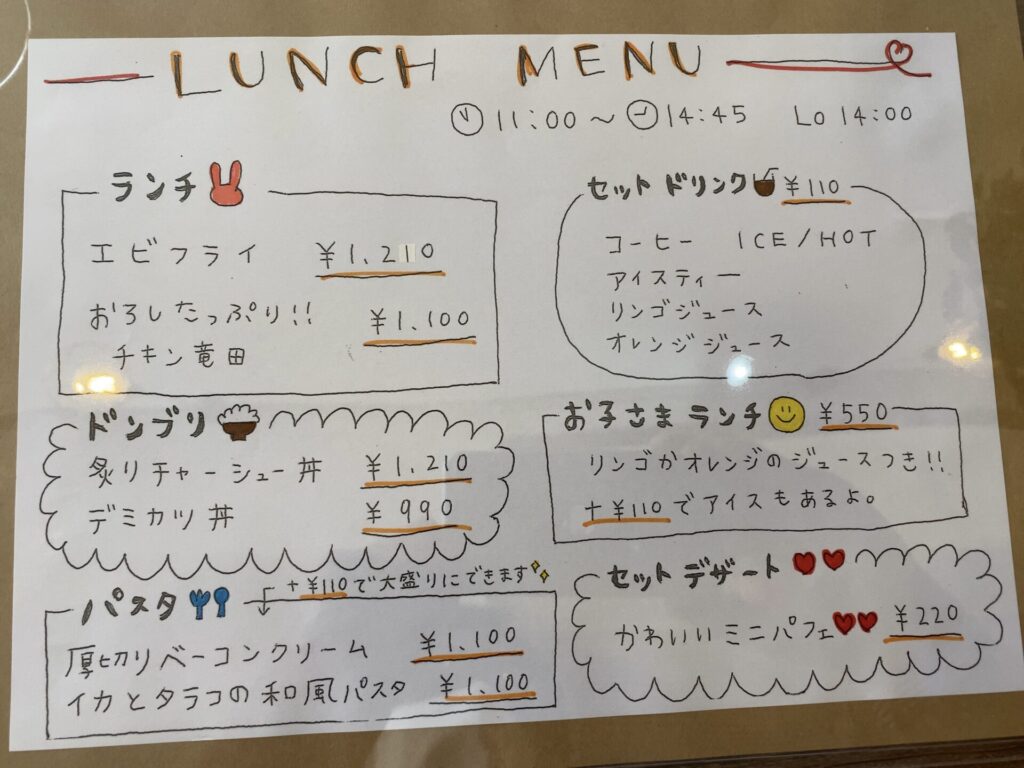 LUNCH MENU
11:00〜14:45 Lo 14:00
ランチ
エビフライ ¥1.210
おろしたっぷり!! ¥1.100
チキン竜田
セットドリンク ¥110
コーヒー ICE/HOT
アイスティー
リンゴジュース
オレンジジュース
ドンブリ
炙りチャーシュー丼 ¥1.210
デミカツ丼 ¥990
お子さまランチ ¥550
リンゴかオレンジのジュースつき!!
+¥110でアイスもあるよ。
パスタ
+¥110で大盛りにできます
厚切りベーコンクリーム ¥1.100
イカとタラコの和風パスタ ¥1.100
セットデザート
かわいいミニパフェ ¥220